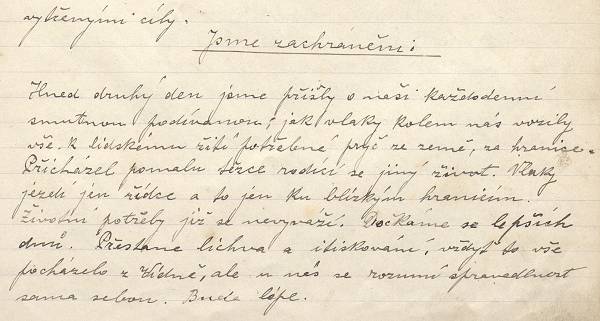 vytčenými cíly.
Jsme zachráněni!
Hned druhý den jsme přišly o naši každodenní
smutnou podívanou, jak vlaky kolem nás vozily
vše k lidskému žití potřebné pryč ze země, za hranice.
Přicházel pomalu těžce rodící se jiný život. Vlaky
jezdí jen řídce a to jen ku blízkým hranicím.
Životní potřeby již se nevyváží. Dočkáme se lepších
dnů. Přestane lichva a utiskování, vždyť to vše
pocházelo z Vídně, ale u nás se rozumí spravedlnost
sama sebou. Bude lépe.